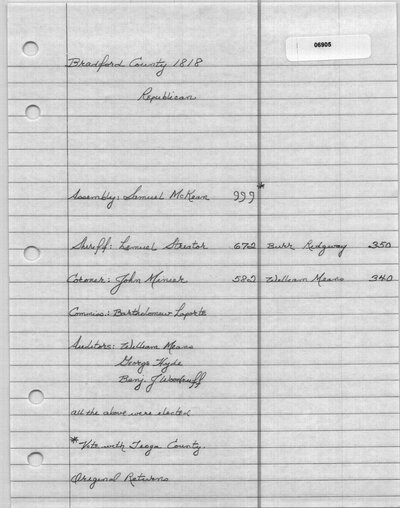 06905
Bradford County 1818
Republican
Assembly: Samuel McKean 999 *
Sheriff: Lemuel Streator 672 Burr Ridgway 350
Coroner: John Minier 582 William Means 340
Commiss.: Bartholomew Laporte
Auditors: William Means
George Hyde
Benj. J Woodruff
all the above were elected
* Vote with Tioga County.
Original Returns